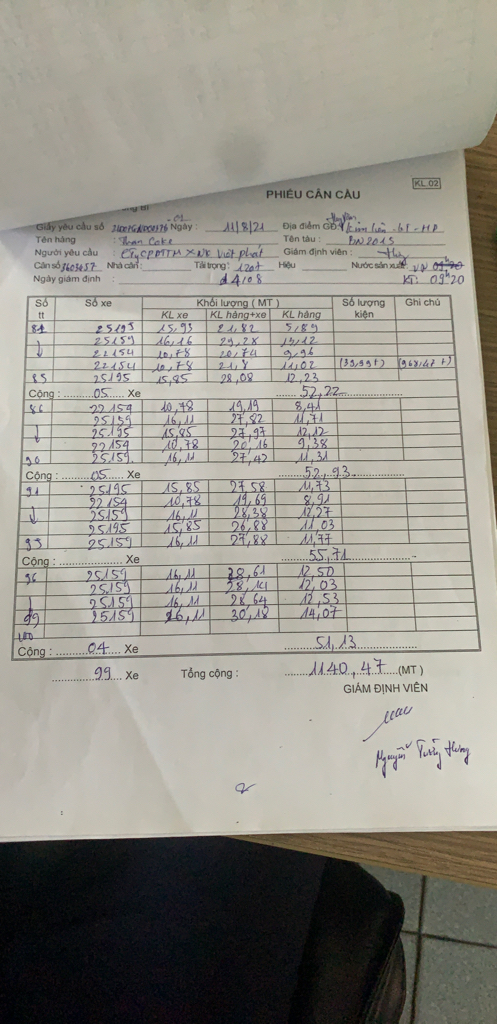 KL.02
PHIẾU CÂN CẦU
Giấy yêu cầu số Ngày : 11/8/21 Địa điểm GĐ :
Tên hàng : Than Coke Tên tàu : BN2015
Người yêu cầu : Cty CPĐTTM XNK Việt phát Giám định viên :
Cân số Nhà cân : Tải trọng : 120t Hiệu Nước sản xuất
Ngày giám định : d4/08 KT: 09h20
Số tt Số xe Khối lượng ( MT ) Số lượng kiện Ghi chú
KL xe KL hàng+xe KL hàng
81 25195 15,93 21,82 5,89
25159 16,16 29,28 13,12
22154 10,78 20,74 9,96
22154 10,78 21,8 11,02 (39,99t) (968,47 t)
85 25195 15,85 28,08 12,23
Cộng : 05 Xe 52,22
86 22154 10,78 19,19 8,41
25159 16,11 27,82 11,71
25195 15,85 27,97 12,12
22154 10,78 20,16 9,38
90 25159 16,11 27,42 11,31
Cộng : 05 Xe 52,93
91 25195 15,85 27,58 11,73
22154 10,78 19,69 8,91
25159 16,11 28,38 12,27
25195 15,85 26,88 11,03
95 25159 16,11 27,88 11,77
Cộng : Xe 55,71
96 25159 16,11 28,61 12,50
25159 16,11 28,14 12,03
25159 16,11 28,64 12,53
99 25159 16,11 30,18 14,07
100
Cộng : 04 Xe 51,13
99 Xe Tổng cộng : 1140,47 (MT )
GIÁM ĐỊNH VIÊN